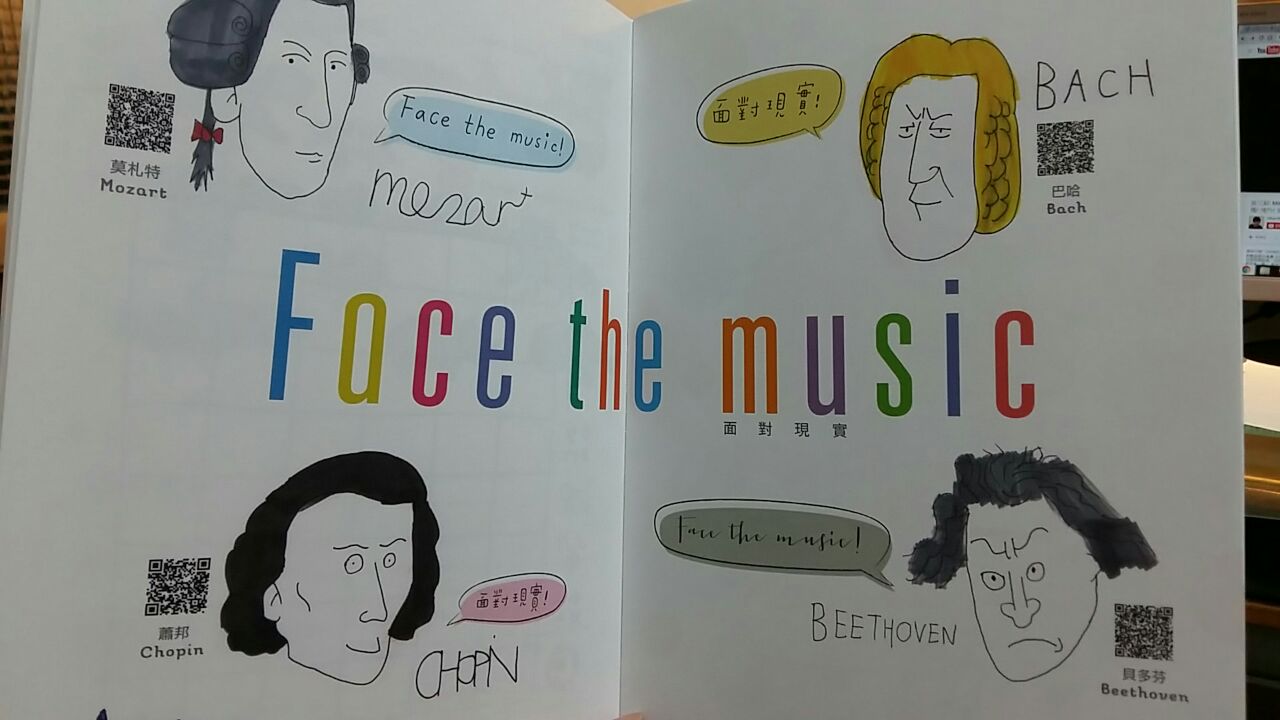 Face the music!
mozart
莫札特
Mozart
面對現實!
BACH
巴哈
Bach
Face the music
面對現實
面對現實!
CHOPIN
蕭邦
Chopin
Face the music!
BEETHOVEN
貝多芬
Beethoven